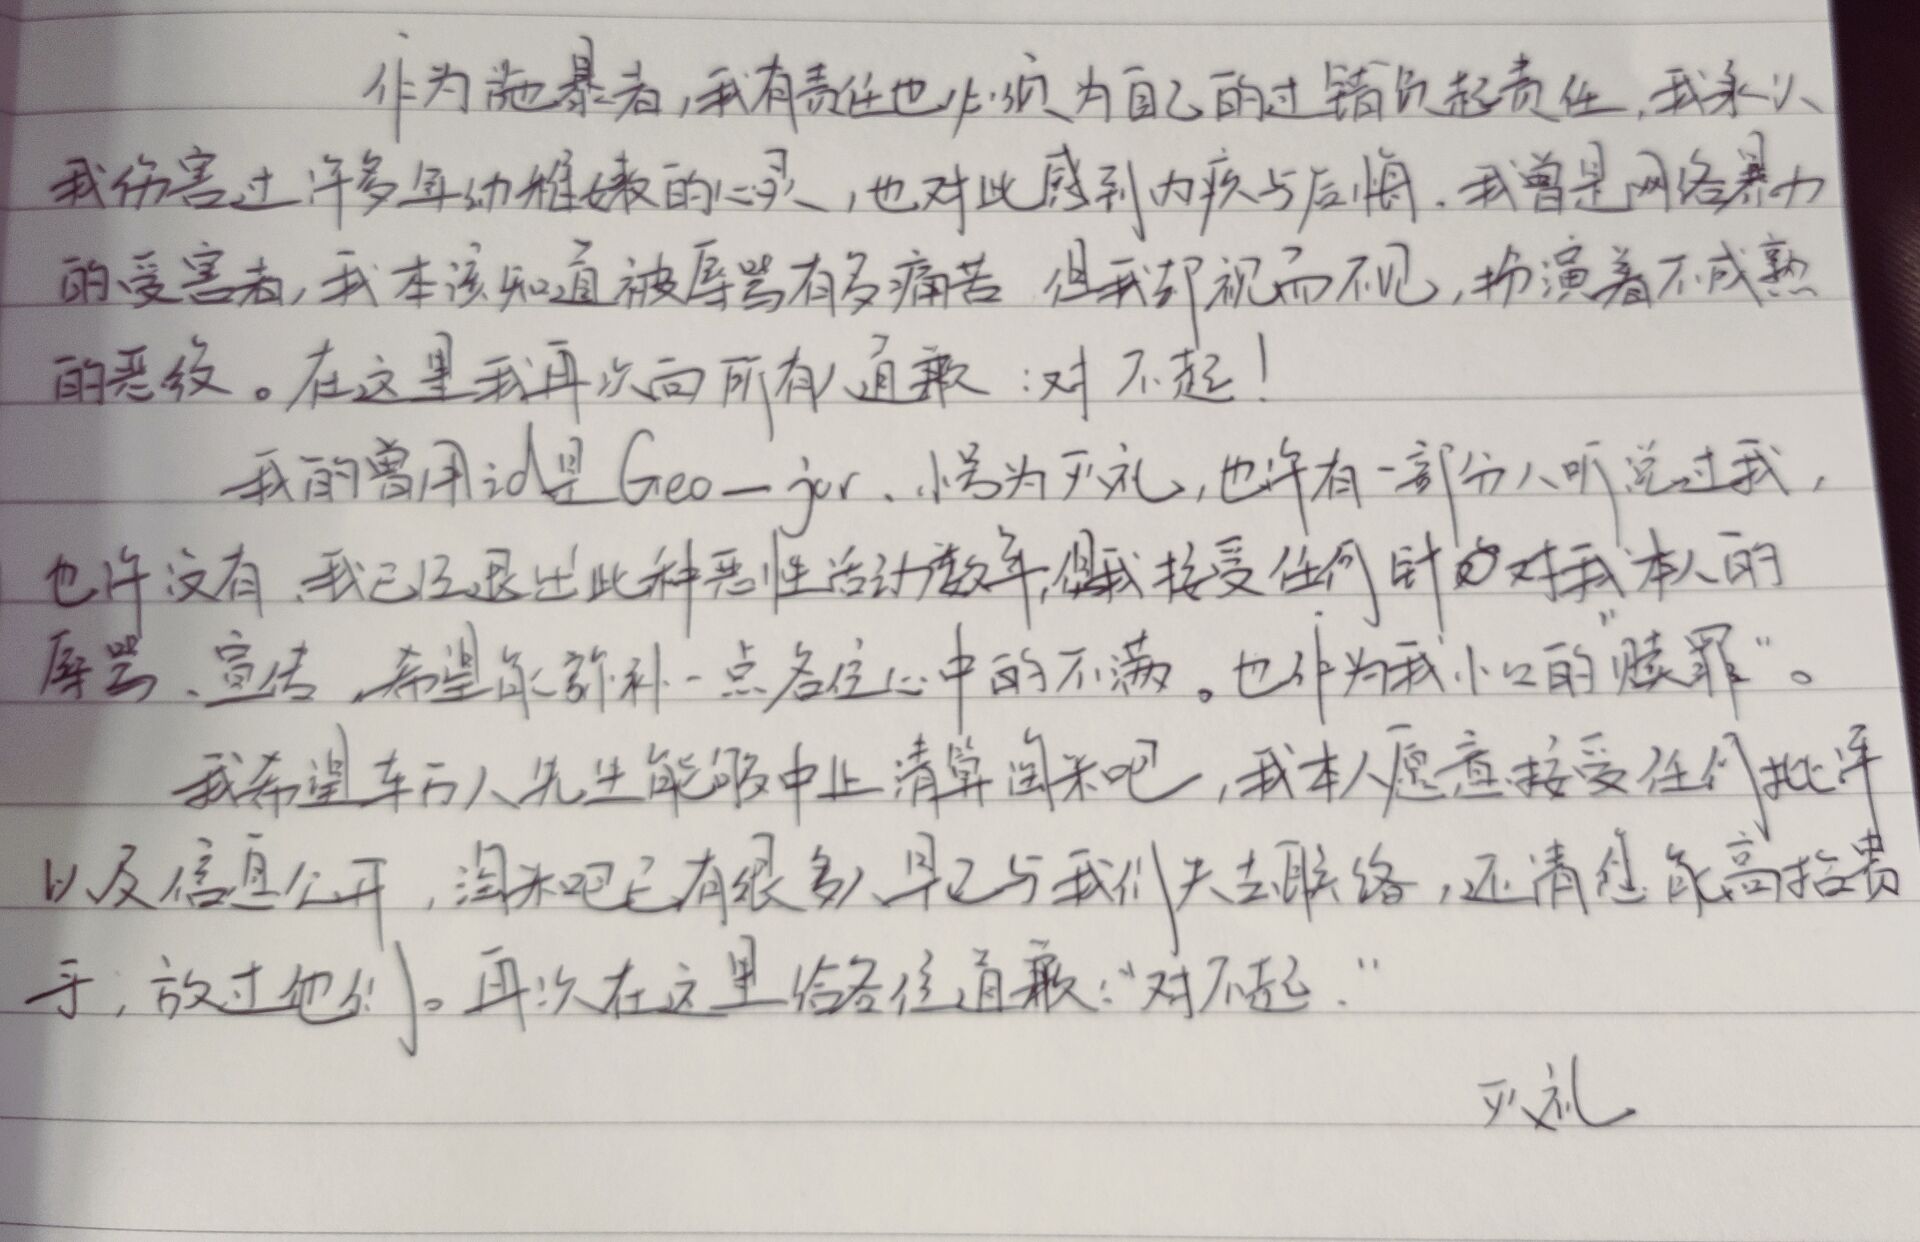 作为施暴者,我有责任也必须为自己的过错负起责任,我承认
我伤害过许多年幼稚嫩的心灵,也对此感到内疚与后悔.我曾是网络暴力
的受害者,我本该知道被辱骂有多痛苦 但我却视而不见,扮演着不成熟
的恶役。在这里我再次向所有人道歉:对不起!
我的曾用id是Geo—jor、小号为灭礼,也许有一部分人听说过我,
也许没有、我已经退出此种恶性活动数年,但我接受任何时候对我本人的
辱骂、宣传,希望能弥补一点各位心中的不满。也作为我小口的"赎罪"。
我希望车万人先生能够中止清算淘米吧,我本人愿意接受任何批评
以及信息公开,淘米吧已有很多人早已与我们失去联络,还请您能高抬贵
手,放过他们。再次在这里给各位道歉:"对不起."
灭礼